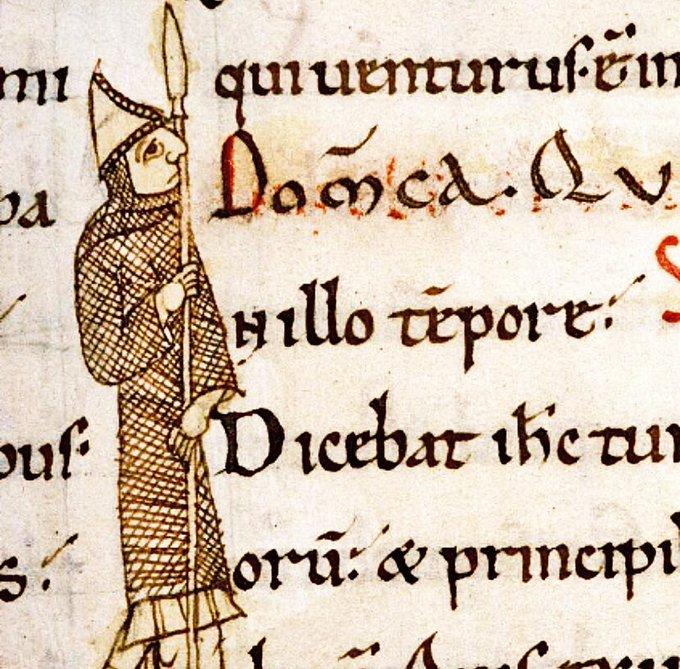 mi
bus·
s:
qui uenturus· ē in
Dom̄ca. Qu
N illo tēpore:
Dicebat ih̄c tur
orū: & principi